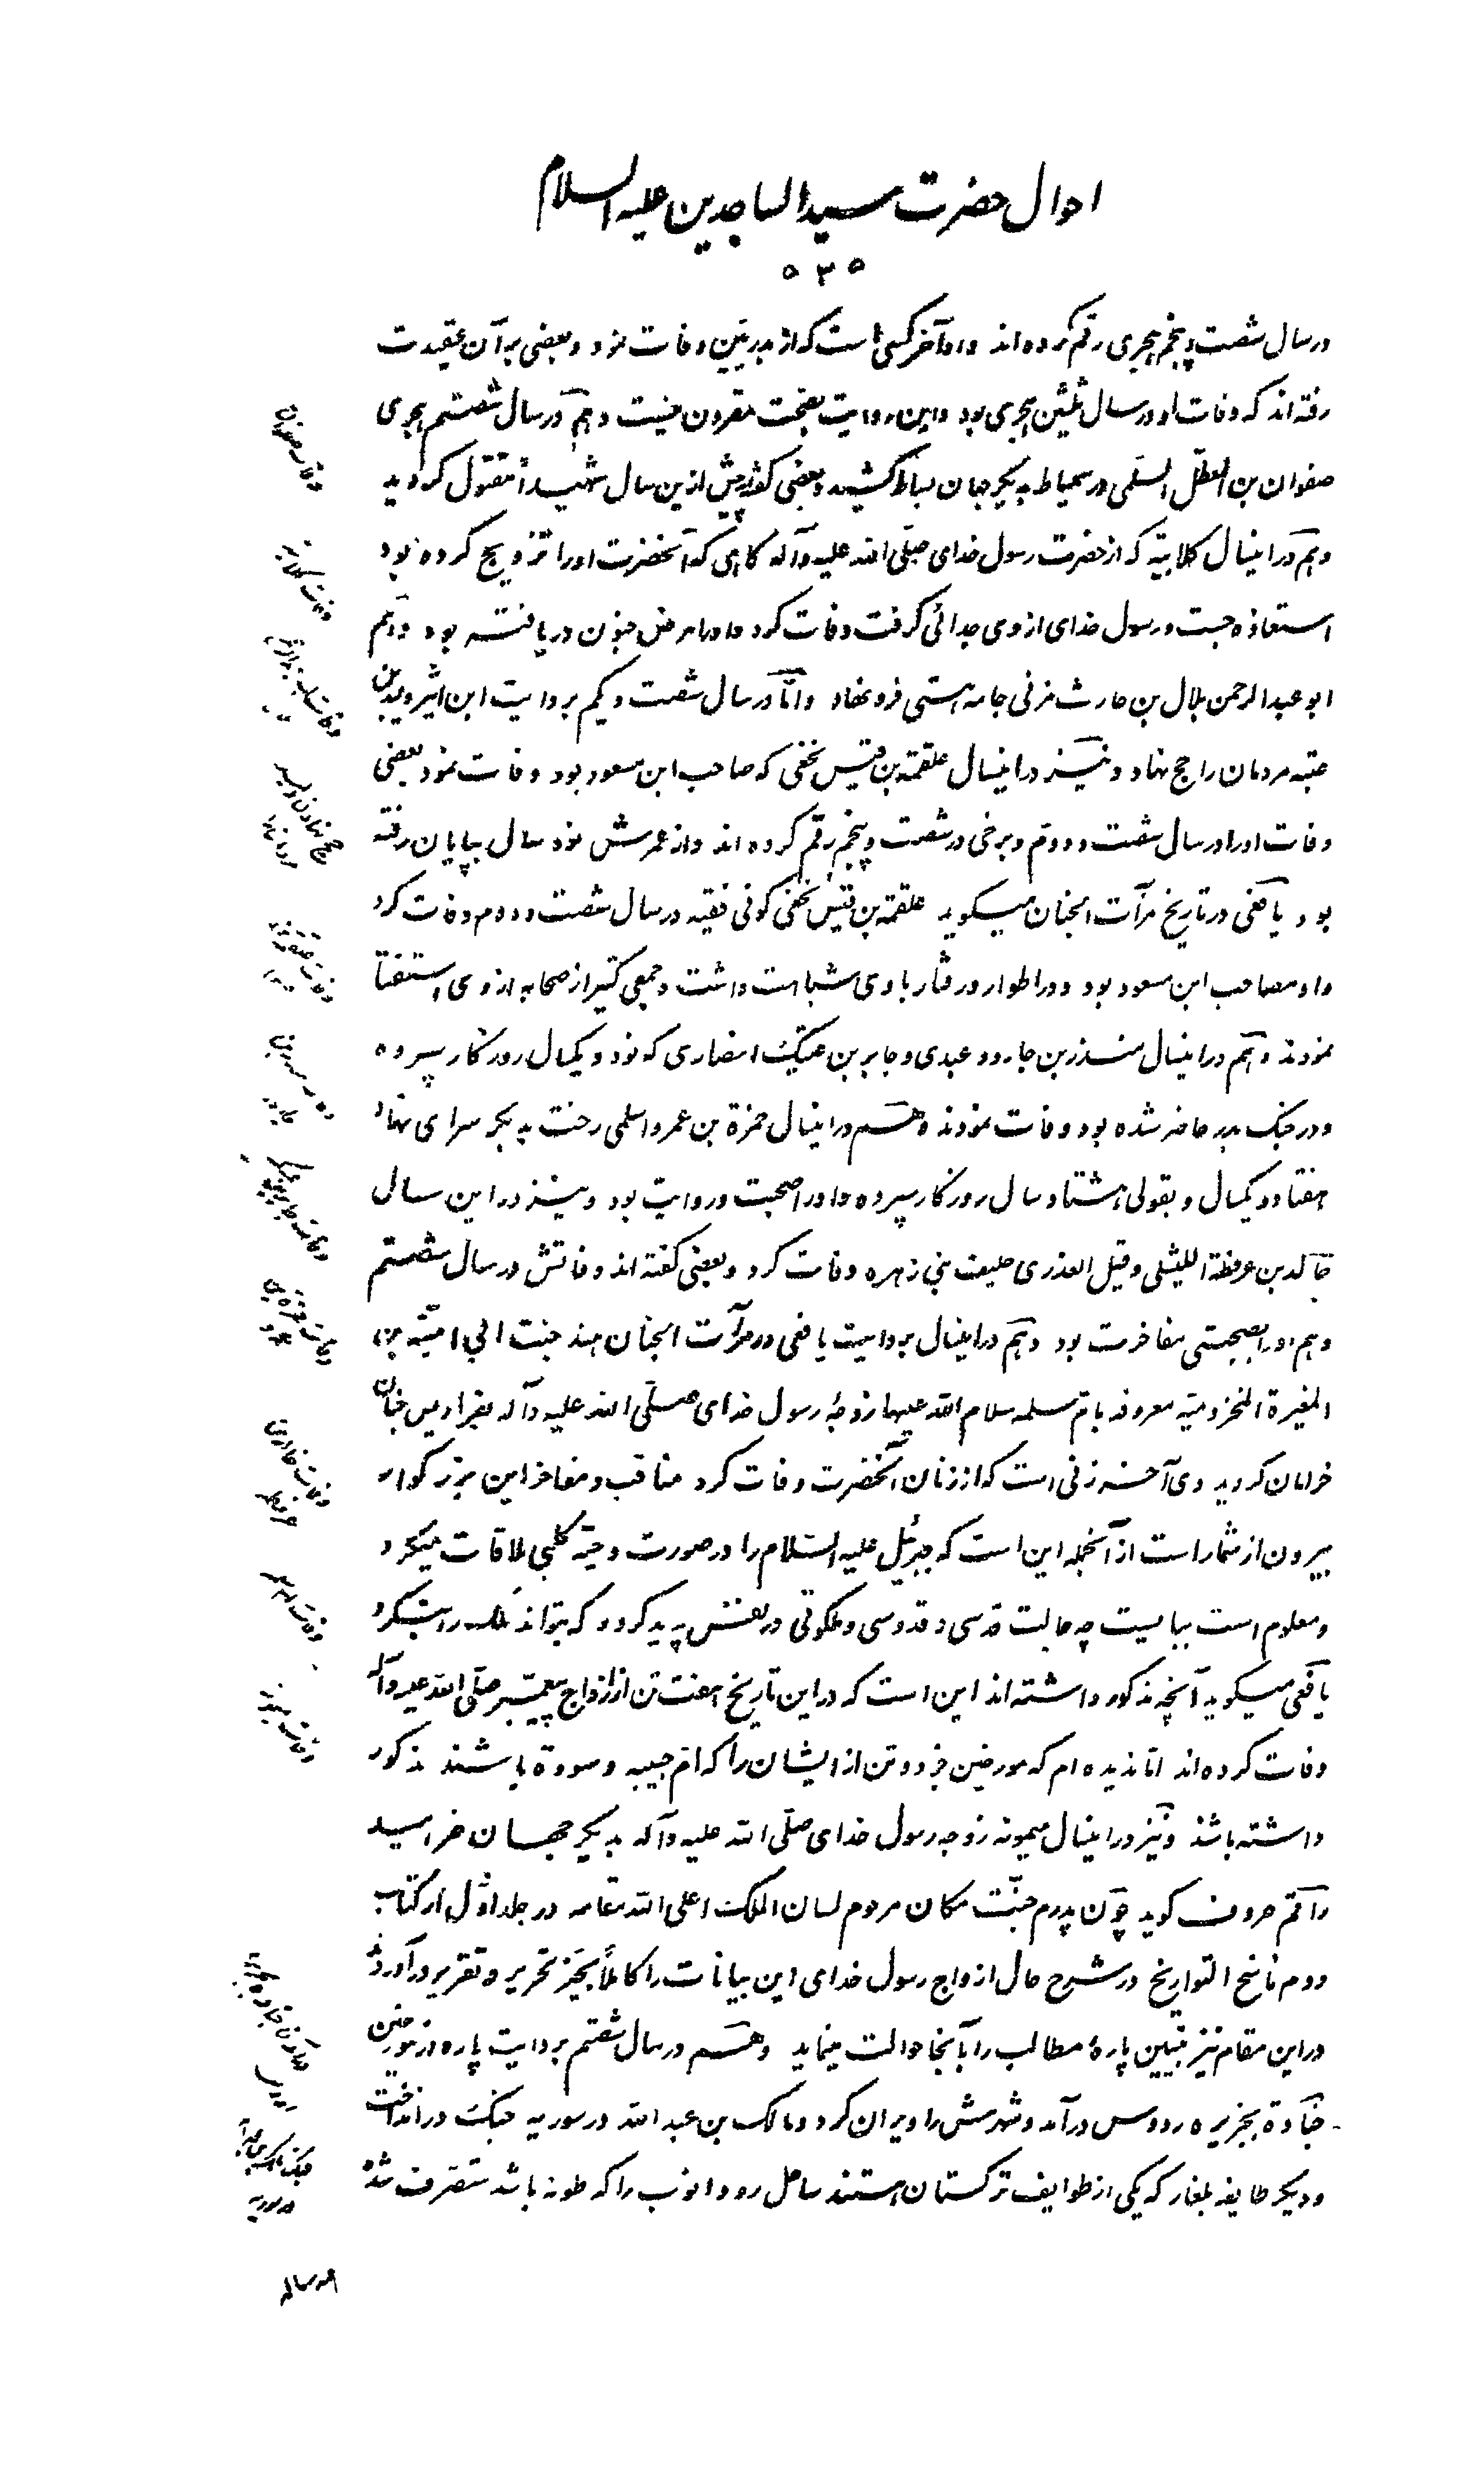 احوال حضرت سید الساجدین علیه السلام
۵۳۵
در سال شصت و پنجم هجری رقم کرده‌اند و او آخر کسی است که از بدریین وفات نمود و بعضی بر آن عقیدت
رفته‌اند که وفات او در سال ثلثین هجری بود و این روایت بصحت مقرون نیست و هم در سال شصتم هجری
صفوان بن المعطل السلمی در سمیاط بدیگر جهان بساط کشید و بعضی گفته‌اند پیش ازین سال شهیداً مقتول گردید
و هم در اینسال کلابیّه که از حضرت رسول خدای صلّی الله علیه و آله گاهی که آنحضرت او را تزویج کرده بود
استعاذه جست و رسول خدای از وی جدائی گرفت وفات کرد و او را مرض جنون دریافته بود و هم
ابو عبد الرحمن بلال بن حارث مزنی جامه هستی فرو نهاد و امّا در سال شصت و یکم بروایت ابن اثیر ولید بن
عتبه مردمان را حج نهاد و نیز در اینسال علقمة بن قیس نخعی که صاحب ابن مسعود بود وفات نمود بعضی
وفات او را در سال شصت و دوم و برخی در شصت و پنجم رقم کرده‌اند و از عمرش نود سال بپایان رفته
بود یافعی در تاریخ مرآت الجنان میگوید علقمة بن قیس نخعی کوفی فقیه در سال شصت و دوم وفات کرد
و او مصاحب ابن مسعود بود و در اطوار و رفتار با وی شباهت داشت و جمعی کثیر از صحابه از وی استفتا
نمودند و هم در اینسال منذر بن جارود عبدی و جابر بن عتیک انصاری که نود و یکسال روزگار سپرده
و در جنگ بدر حاضر شده بود وفات نمودند و هم در اینسال حمزة بن عمرو اسلمی رخت بدیگر سرای نهاد
هفتاد و یکسال و بقولی هشتاد سال روزگار سپرده و او را صحبت و روایت بود و نیز در این سال
خالد بن عرفطة اللیثی و قیل العذری حلیف بنی زهره وفات کرد و بعضی گفته‌اند وفاتش در سال شصتم
و هم او را بصحبتی مفاخرت بود و هم در اینسال بروایت یافعی در مرآت الجنان هند بنت ابی امیّة بن
المغیرة المخزومیّه معروفه بامّ سلمه سلام الله علیها زوجهٔ رسول خدای صلّی الله علیه و آله بفرادیس جنان
خرامان گردید و وی آخر زنی است که از زنان آنحضرت وفات کرد مناقب و مفاخر این بزرگوار
بیرون از شمار است از آنجمله این است که جبرئیل علیه السّلام را در صورت دحیه کلبی ملاقات میکرد
و معلوم است ببایست چه حالت قدسی و قدوسی و ملکوتی در نفس پدید گردد که بتواند ملک را بنگرد
یافعی میگوید آنچه مذکور داشته‌اند این است که در این تاریخ هفت تن از ازواج پیغمبر صلّی الله علیه و آله
وفات کرده‌اند امّا ندیده‌ام که مورخین جز دو تن از ایشان را که امّ حبیبه و سودة باشند مذکور
داشته باشند و نیز در اینسال میمونه زوجه رسول خدای صلّی الله علیه و آله بدیگر جهان خرامید
راقم حروف گوید چون پدرم جنّت مکان مرحوم لسان الملک اعلی الله مقامه در جلد اوّل از کتاب
دوم ناسخ التواریخ در شرح حال ازواج رسول خدای این بیانات را کاملاً بحیّز تحریر و تقریر درآورده
در این مقام نیز تبیین پارهٔ مطالب را بآنجا حوالت مینماید و هم در سال شصتم بروایت پاره از مورخین
جنادة بجزیره رودوس درآمد و شهرش را ویران کرد و مالک بن عبد الله در سوریه جنگ در انداخت
و دیگر طایفه بلغار که یکی از طوایف ترکستان هستند ساحل رود انوب را که طونه باشد متصرف شدند
وفات صفوان
وفات کلابیه
حج نهادن ولید
وفات علقمه
وفات جابر بن عتیک
وفات حمزه بن عمرو
وفات خالد بن عرفطه
وفات ام سلمه
وفات میمونه